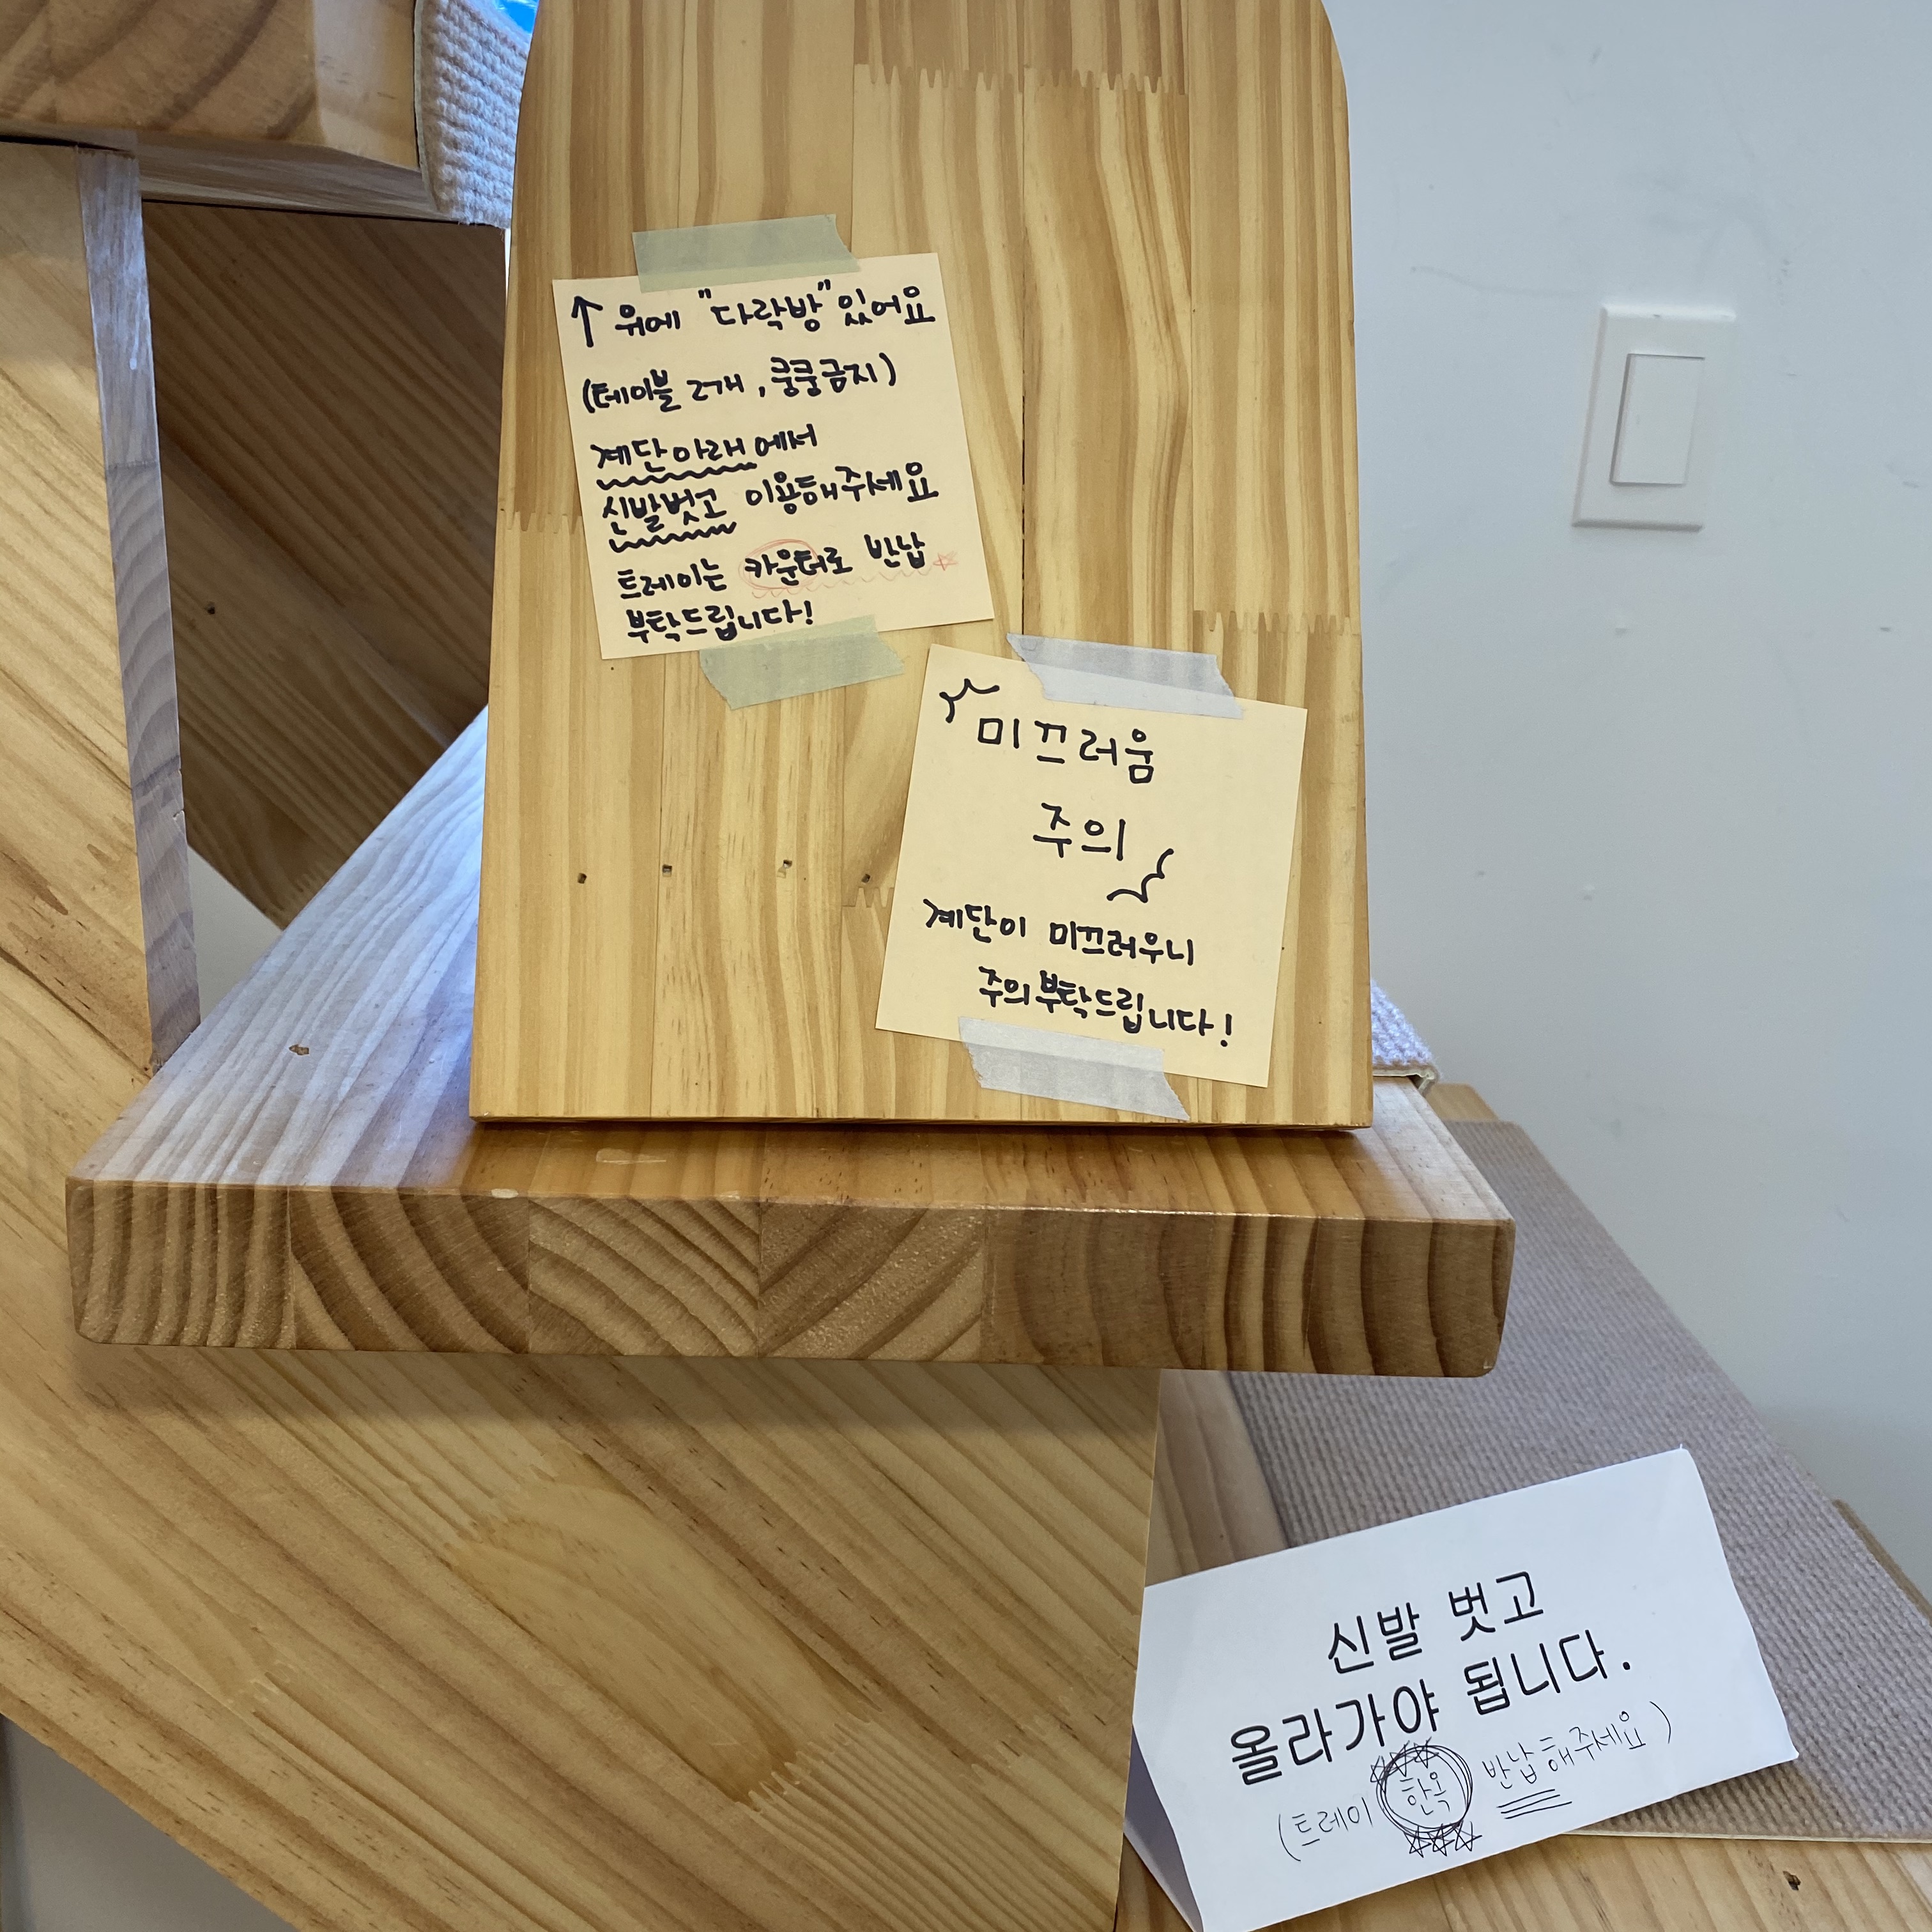 ↑ 위에 "다락방" 있어요
(테이블 2개, 쿵쿵금지)
계단아래에서
신발벗고 이용해주세요
트레이는 카운터로 반납
부탁드립니다!
미끄러움
주의
계단이 미끄러우니
주의부탁드립니다!
신발 벗고
올라가야 됩니다.
(트레이 한옥 반납해주세요)